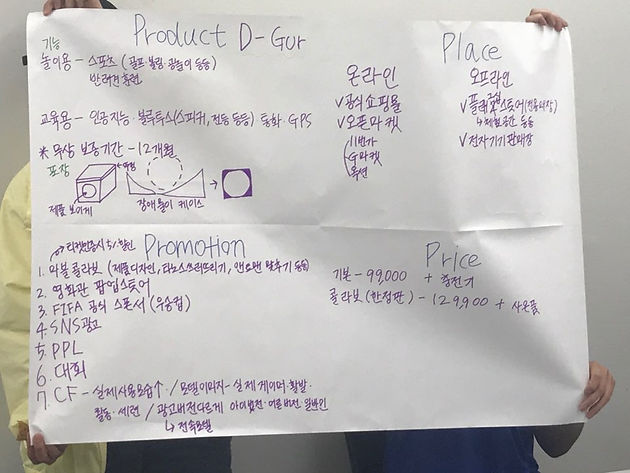 Product D-Gur
기능
놀이용 - 스포츠 (골프 볼링 공놀이 등등)
반려견 훈련
교육용 - 인공지능 · 블루투스(스피커, 진동 등등) 통화 · GPS
* 무상 보증기간 - 12개월
포장
제품 보이게
장애물이 케이스
Place
온라인
V 공식 쇼핑몰
V 오픈마켓
11번가
G마켓
옥션
오프라인
공식
V 플래그쉽스토어(전용매장)
↳ 체험공간 등등
V 전자기기 판매장
Promotion
티켓인증시 5% 할인
1. 마블 콜라보 (제품디자인, 타노스쓰러뜨리기, 앤트맨 맞추기 등등)
2. 영화관 팝업스토어
3. FIFA 공식 스폰서 (우승컵)
4. SNS광고
5. PPL
6. 대회
7. CF - 실제사용모습↑ / 모델이미지 - 실제 게이머 · 활발 ·
활동 · 세련 / 광고버전다르게 아이버전 · 어른버전 · 일반인
↳ 전속모델
Price
기본 - 99,000 + 충전기
콜라보 (한정판) - 129,900 + 사은품